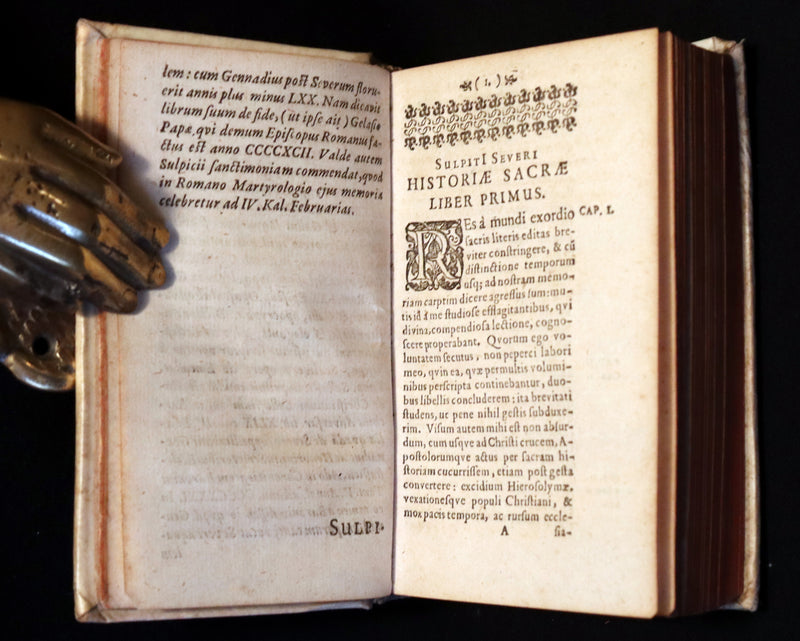 lem: cum Gennadius post Severum floru-
erit annis plus minus LXX. Nam dicavit
librum suum de fide, (ut ipse ait) Gelasio
Papæ, qvi demum Episcopus Romanus fa-
ctus est anno CCCCXCII. Valde autem
Sulpicii sanctimoniam commendat, qvod
in Romano Martyrologio ejus memoria
celebretur ad IV. Kal. Februarias.
SULPI-
(1.)
SULPITI SEVERI
HISTORIÆ SACRÆ
LIBER PRIMUS.
REs á mundi exordio CAP. I.
sacris literis editas bre-
viter constringere, & cū
distinctione temporum
usq; ad nostram memo-
riam carptim dicere agressus sum: mu-
tis id á me studiose efflagitantibus, qvi
divina, compendiosa lectione, cogno-
scere properabant. Qvorum ego vo-
luntatem secutus, non peperci labori
meo, qvin ea, qvæ permultis volumi-
nibus perscripta continebantur, duo-
bus libellis concluderem: ita brevitati
studens, ut pene nihil gestis subduxe-
rim. Visum autem mihi est non absur-
dum, cum usqve ad Christi crucem, A-
postolorumqve actus per sacram hi-
storiam cucurrissem, etiam post gesta
convertere: excidium Hierosolymæ,
vexationesqve populi Christiani, &
mox pacis tempora, ac rursum eccle-
A sia-